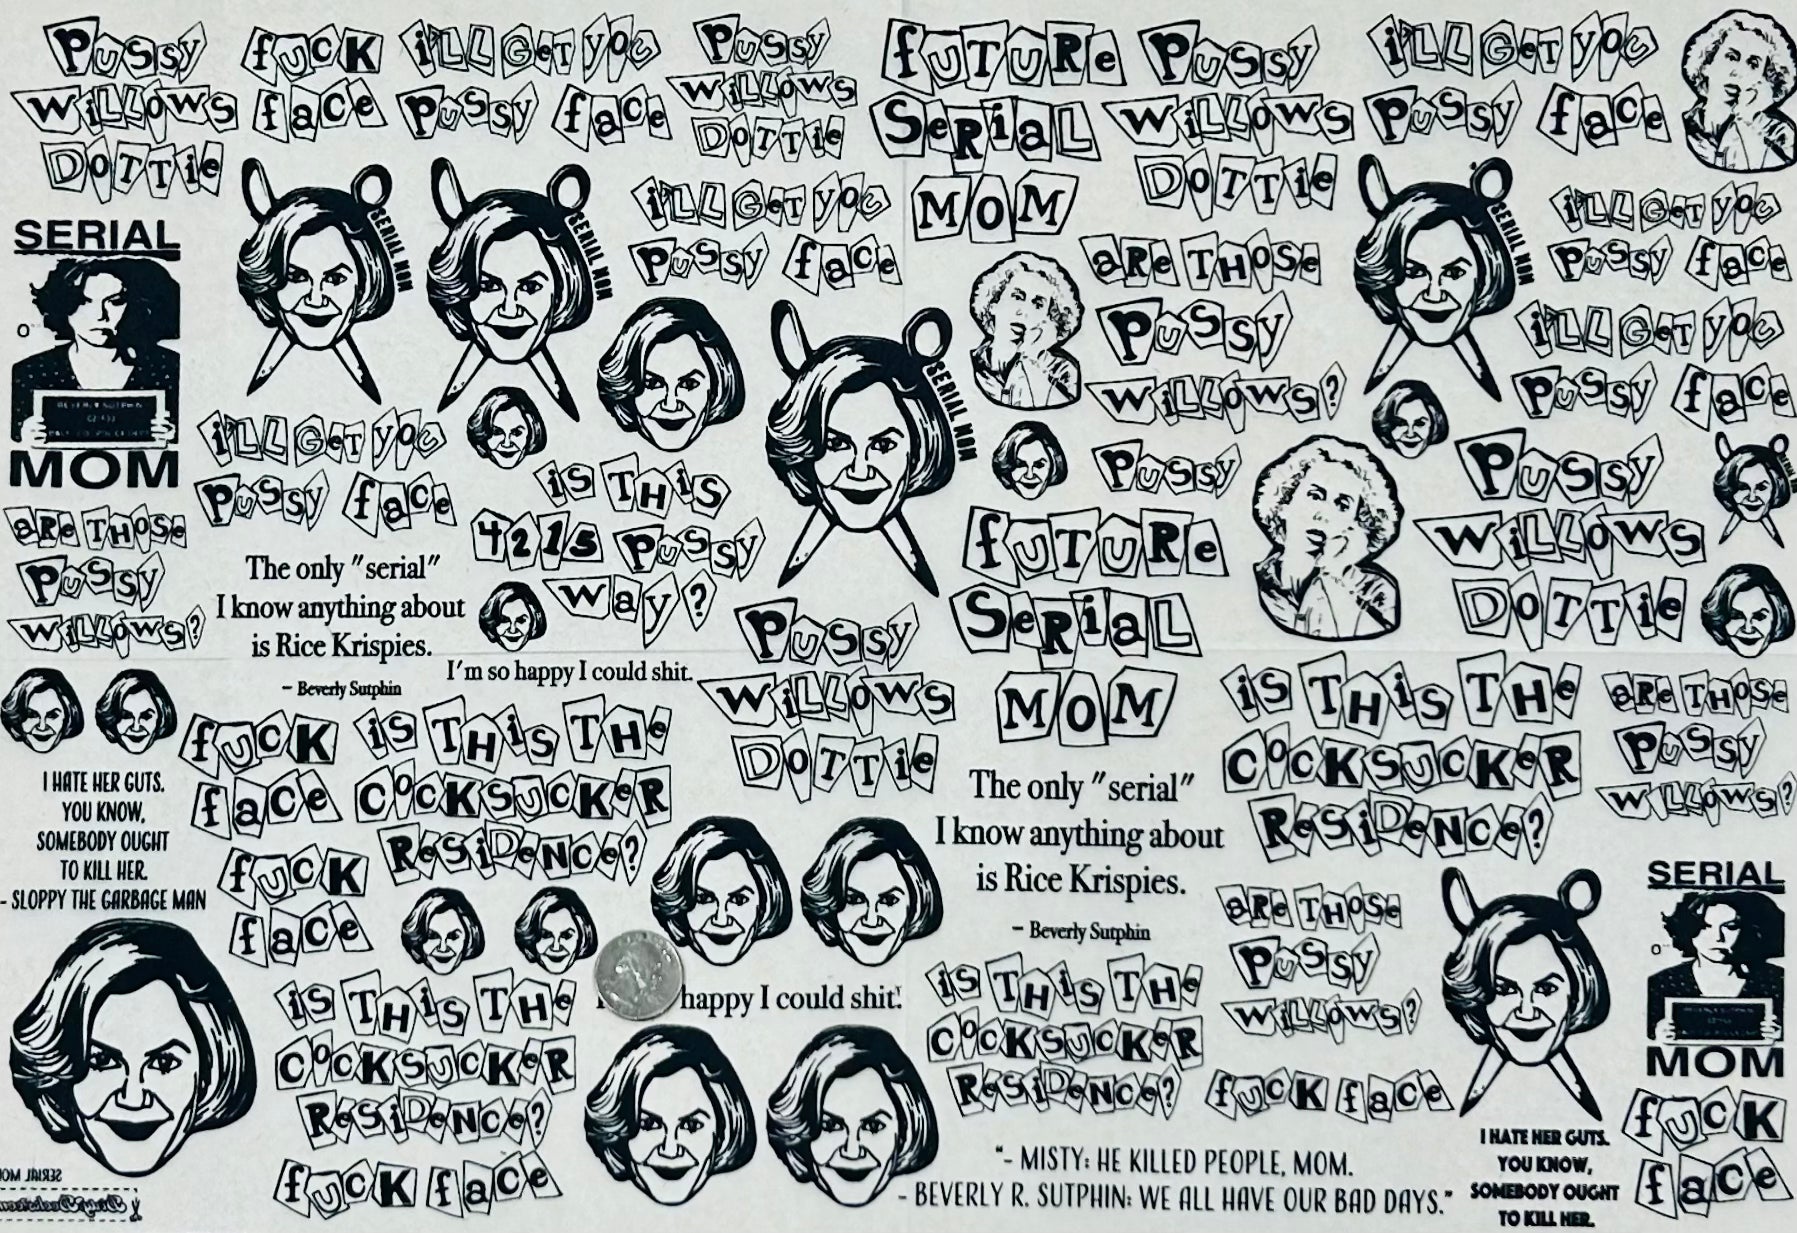 Pussy
Willows
Dottie
fuck
face
i'll Get you
Pussy face
Pussy
Willows
Dottie
future
Serial
Mom
Pussy
Willows
Dottie
i'll Get you
Pussy face
SERIAL
MOM
SERIAL MOM
SERIAL MOM
i'll Get you
Pussy face
are those
Pussy
Willows?
SERIAL MOM
i'll Get you
Pussy face
i'll Get you
Pussy face
BEVERLY SUTPHIN
i'll Get you
Pussy face
SERIAL MOM
is This
4215 Pussy
way?
Pussy
Willows
Dottie
Pussy
future
Serial
Mom
are those
Pussy
Willows?
The only "serial"
I know anything about
is Rice Krispies.
- Beverly Sutphin
I'm so happy I could shit.
Pussy
Willows
Dottie
I HATE HER GUTS.
YOU KNOW,
SOMEBODY OUGHT
TO KILL HER.
- SLOPPY THE GARBAGE MAN
fuck
face
is This The
Cocksucker
Residence?
fuck
face
is This The
Cocksucker
Residence?
are those
Pussy
Willows?
The only "serial"
I know anything about
is Rice Krispies.
- Beverly Sutphin
happy I could shit.
is This The
Cocksucker
Residence?
is This The
Cocksucker
Residence?
are those
Pussy
Willows?
SERIAL
MOM
fuck face
fuck face
fuck
face
"- MISTY: HE KILLED PEOPLE, MOM.
- BEVERLY R. SUTPHIN: WE ALL HAVE OUR BAD DAYS."
I HATE HER GUTS.
YOU KNOW,
SOMEBODY OUGHT
TO KILL HER.
SERIAL MOM